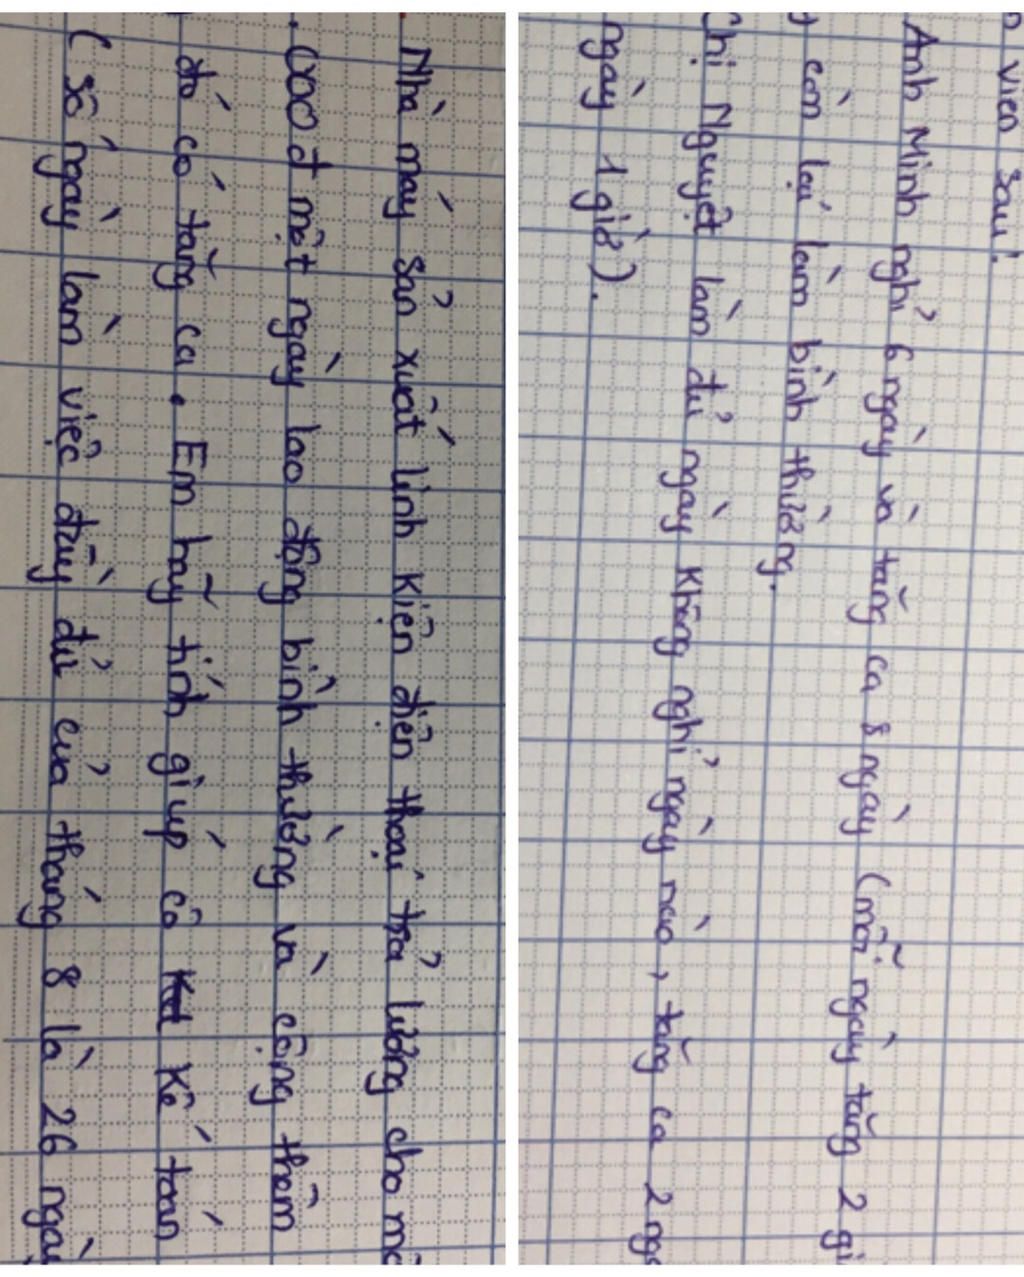 Nhà máy sản xuất linh kiện điện thoại trả lương cho
.000 đ một ngày lao động bình thường và cộng thêm
đó có tăng ca. Em hãy tính giúp cô kế toán
( số ngày làm việc đầy đủ của tháng 8 là 26 ngày
viên sau:
Anh Minh nghỉ 6 ngày và tăng ca 8 ngày (mỗi ngày tăng 2
còn lại làm bình thường.
Chị Nguyệt làm đủ ngày không nghỉ ngày nào, tăng ca 2
ngày 1 giờ).